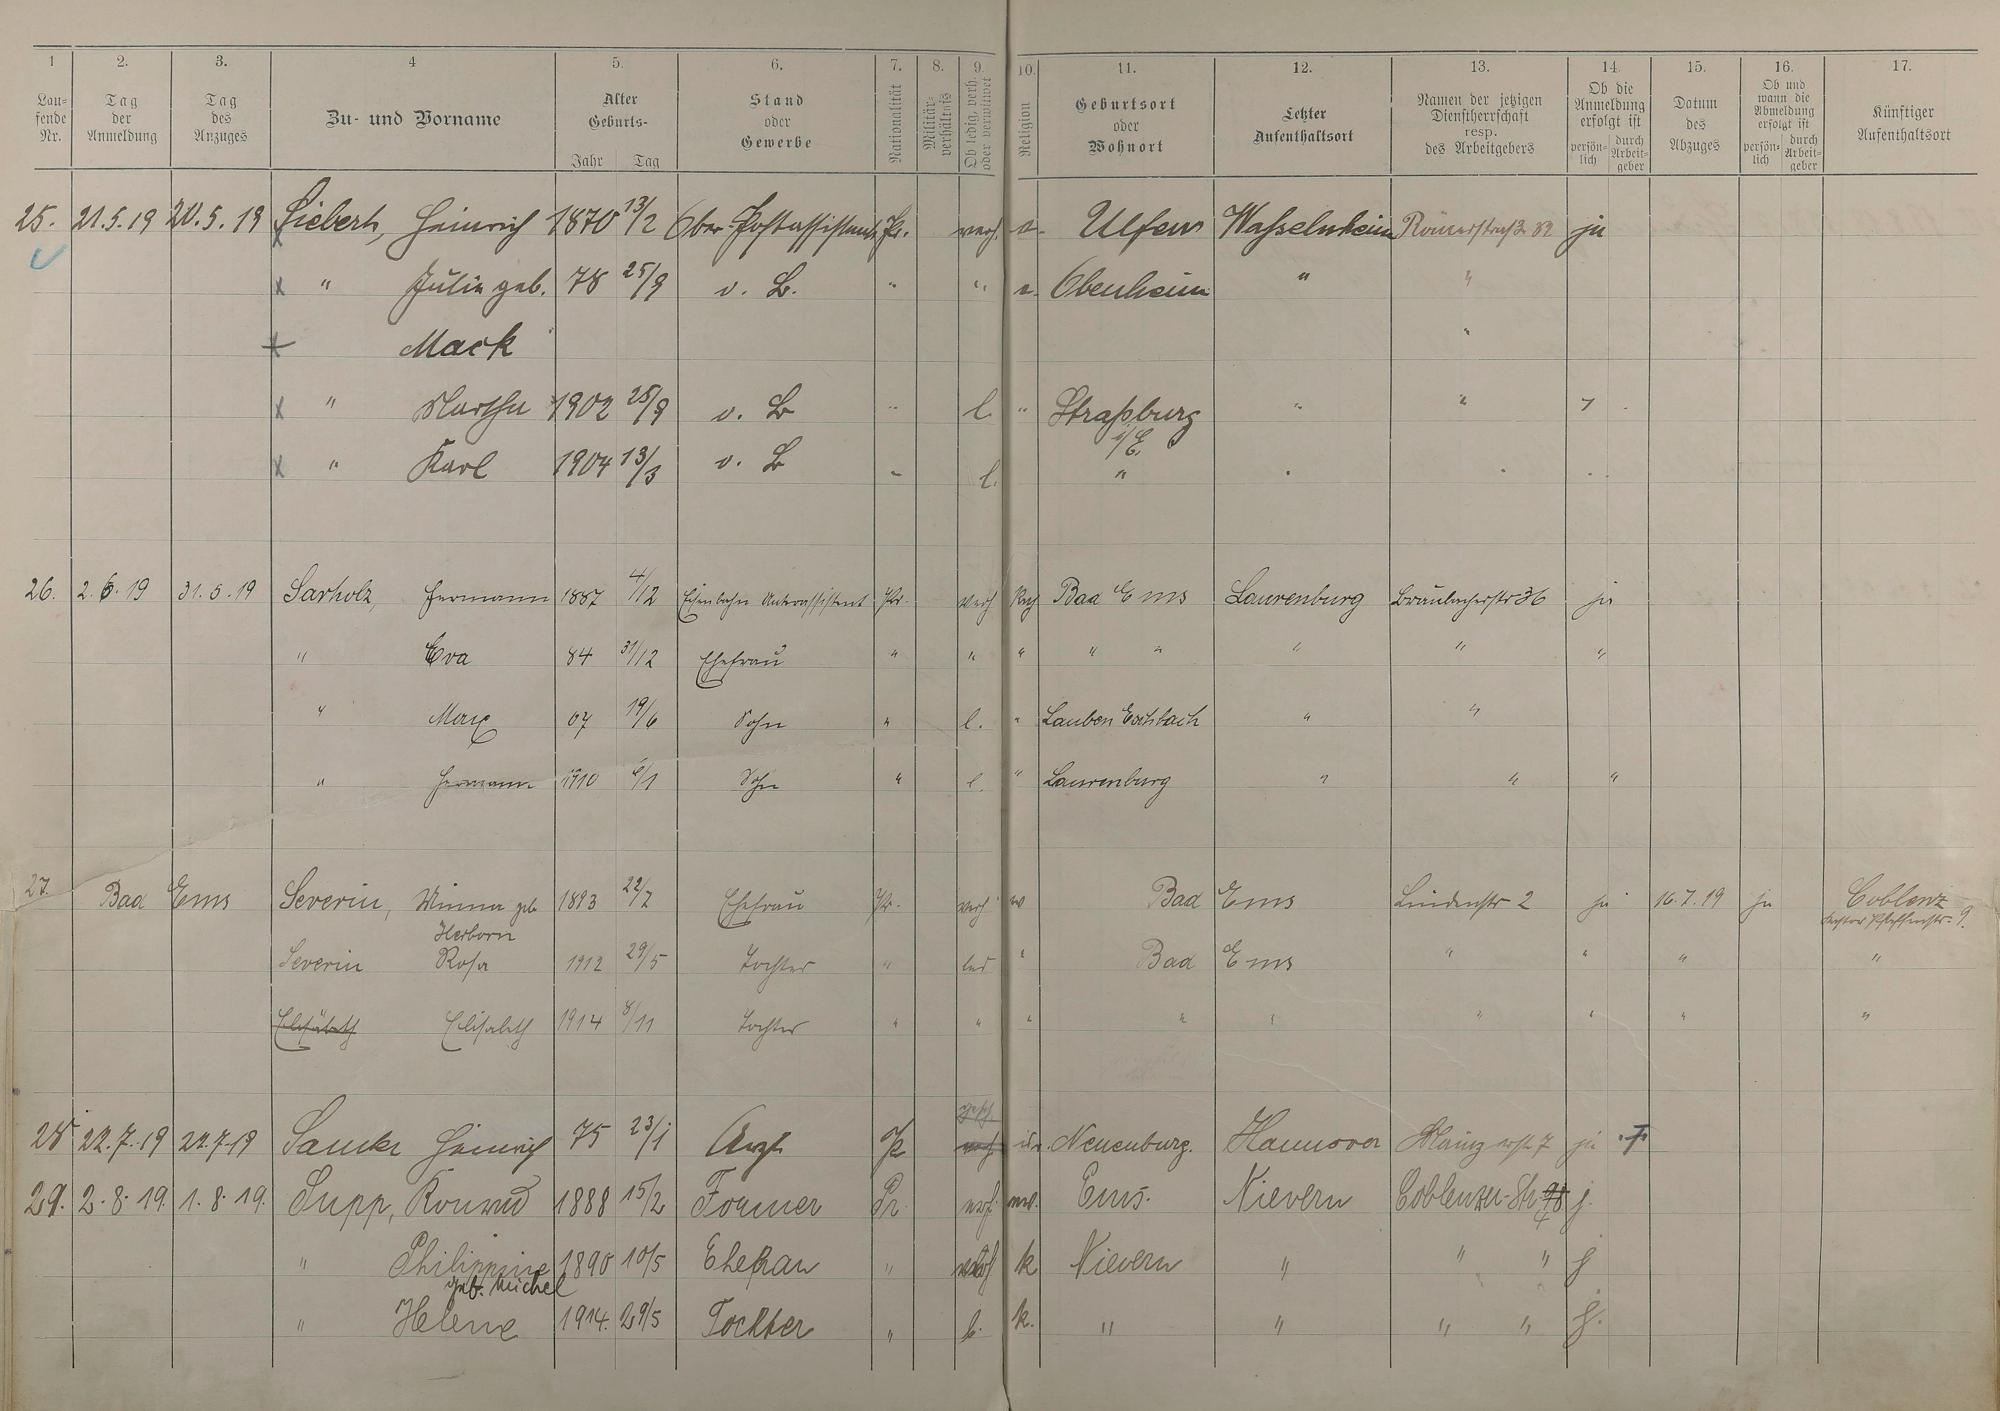 1 2. 3. 4 5. 6. 7. 8. 9. 10. 11. 12. 13. 14. 15. 16. 17.
Lau-
fende
Nr.
Tag
der
Anmeldung
Tag
des
Anzuges
Zu- und Vorname
Alter
Geburts-
Jahr Tag
Stand
oder
Gewerbe
Nationalität
Militär-
verhältnis
Ob ledig, verh.
oder verwitwet
Religion
Geburtsort
oder
Wohnort
Letzter
Aufenthaltsort
Namen der jetzigen
Dienstherrschaft
resp.
des Arbeitgebers
Ob die
Anmeldung
erfolgt ist
persön-
lich
durch
Arbeit-
geber
Datum
des
Abzuges
Ob und
wann die
Abmeldung
erfolgt ist
persön-
lich
durch
Arbeit-
geber
Künftiger
Aufenthaltsort
25. 21.5.19 20.5.19 Siebert, Heinrich 1870 13/2 Ober-Postassistent Pr. verh. Ulfen Wasselnheim Römerstraße 82 ja
x " Julie geb. 78 25/9 o. B. " " Obenheim " "
Mack "
x " Martha 1902 25/9 o. B " l. " Straßburg " "
i/E.
x " Karl 1904 13/3 o. B " l. "
26. 2.6.19 31.5.19 Sarholz, Hermann 1887 4/12 Eisenbahn Unterassistent Pr. verh Bad Ems Laurenburg Braubacherstr 36 ja
" Eva 84 31/12 Ehefrau " " " " " " " "
" Max 07 19/6 Sohn " l. " "  "
" Hermann 1910 6/1 Sohn " l. " Laurenburg " " "
27. Bad Ems Severin, Minna geb 1893 22/7 Ehefrau Pr. verh Bad Ems Lindenstr 2 ja 16.7.19 ja Coblenz
Herborn
Severin Rosa 1912 29/5 Tochter " led " Bad Ems " " " "
Elisabeth Elisabeth 1914 8/11 Tochter " " " " " " " " "
28 22.7.19 22.7.19 Heinrich 75 23/1 Arzt Pr Neuenburg. Hannover Mainzerstr 7 ja
29. 2.8.19. 1.8.19. Supp, Konrad 1888 15/2 Former Pr. verh. Ems. Nievern Coblenzer-Str. j.
" Philippine 1890 10/5 Ehefrau " verh k Nievern " " " j
geb. Michel
" Helene 1914. 29/5 Tochter " l. k. " " " " j.